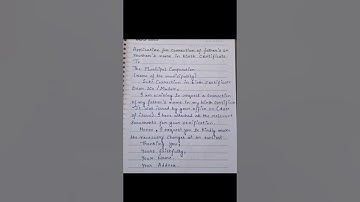 Application for correction of father's or
mother's name in birth certificate
To
The Municipal Corporation
(name of the municipality)
Sub: Correction in birth certificate
Dear Sir/Madam,
I am writing to request a correction
of my father's name in my birth certificate
It was issued by your office on (date
of issue). I have attached all the relevant
documents for your verification.
Hence, I request you to kindly make
the necessary changes at an earliest.
Thanking you,
Yours faithfully,
Your Name.
Your Address